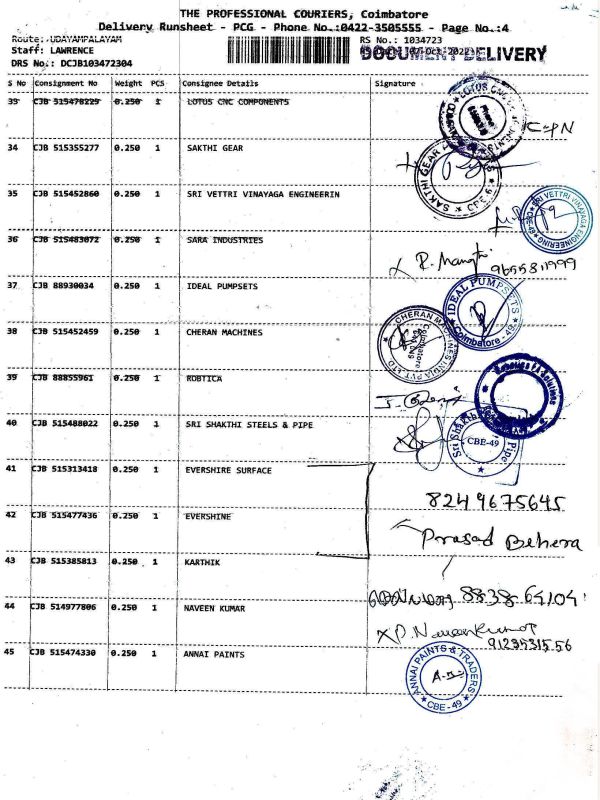 THE PROFESSIONAL COURIERS, Coimbatore
Delivery Runsheet - PCG - Phone No.:0422-3505555 - Page No.:4
Route: UDAYAMPALAYAM
RS No.: 1034723
Staff: LAWRENCE
DOCUMENT DELIVERY
DRS No.: DCJB103472304
S No Consignment No Weight PCS Consignee Details Signature
33 CJB 515478229 0.250 1 LOTUS CNC COMPONENTS
34 CJB 515355277 0.250 1 SAKTHI GEAR
35 CJB 515452860 0.250 1 SRI VETTRI VINAYAGA ENGINEERIN
SRI VETTRI VINAYAGA ENGINEERING
36 CJB 515483072 0.250 1 SARA INDUSTRIES
9655811999
37 CJB 88930034 0.250 1 IDEAL PUMPSETS
IDEAL PUMPSETS Coimbatore - 49
38 CJB 515452459 0.250 1 CHERAN MACHINES
CHERAN MACHINES INDIA PVT LTD
39 CJB 88855961 0.250 1 ROBTICA
40 CJB 515488022 0.250 1 SRI SHAKTHI STEELS & PIPE
CBE-49
41 CJB 515313418 0.250 1 EVERSHIRE SURFACE
8249675645
42 CJB 515477436 0.250 1 EVERSHINE
Prasad Behera
43 CJB 515385813 0.250 1 KARTHIK
8838 64104
44 CJB 514977806 0.250 1 NAVEEN KUMAR
P. Naveen Kumar
9123531556
45 CJB 515474330 0.250 1 ANNAI PAINTS
ANNAI PAINTS & TRADERS CBE-49